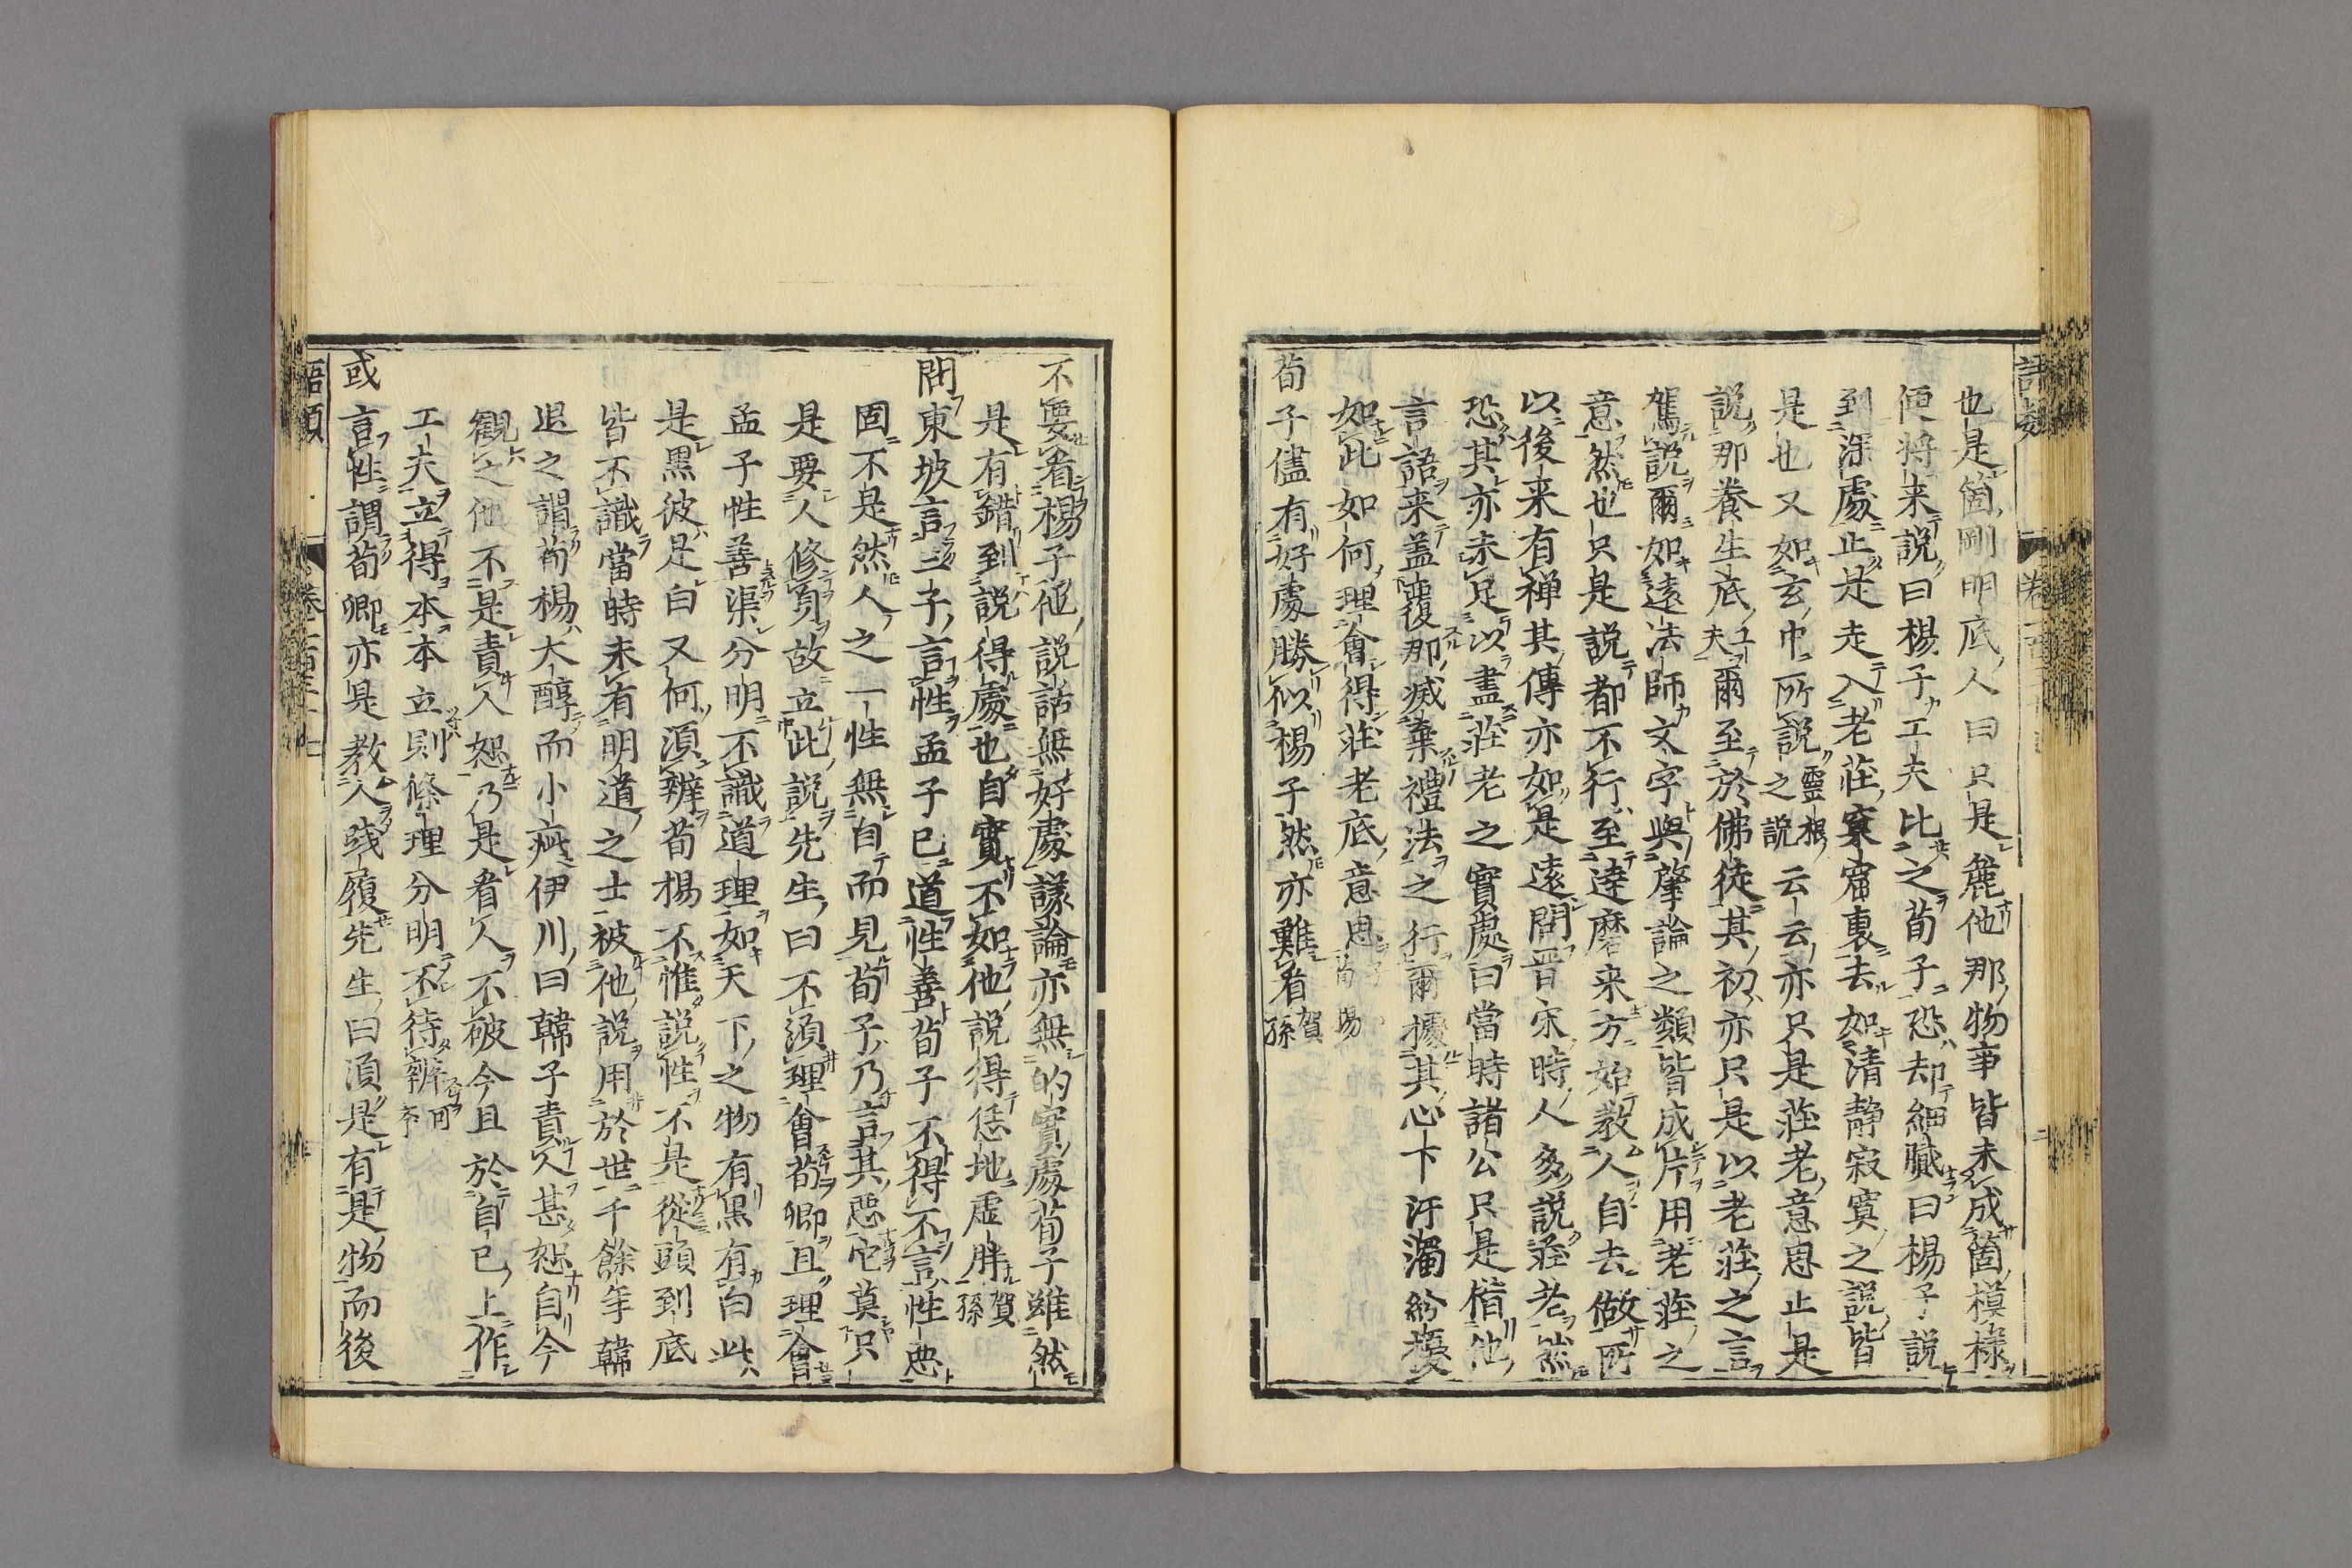 也是箇剛明底人曰只是麁他那物事皆未成箇模様
便将来説曰楊子工夫比之荀子恐却細膩曰楊子説
到深處止是走入老荘窠窟裏去如清静寂寞之説皆
是也又如玄中所説之靈根説云云亦只是荘老意思止是
説那養生底工夫爾至於佛徒其初亦只是以老荘之言
駕説爾如遠法師文字與肇論之類皆成片用老荘之
意然也只是説都不行至達磨来方始教人自去做所
以後来有禅其傳亦如是遠問晋宋時人多説荘老然
恐其亦未足以盡荘老之實處曰當時諸公只是借他
言語来盖覆那滅棄禮法之行爾據其心下汙濁紛擾
如此如何理會得荘老底意思
荀子儘有好處勝似楊子然亦難看賀孫
不要看楊子他説話無好處議論亦無的實處荀子雖然
是有錯到説得處也自實不如他説得恁地虚胖賀孫
問東坡言三子言性孟子已道性善荀子不得不言性悪
固不是然人之一性無自而見荀子乃言其悪它莫只
是要人修身故立此説先生曰不須理會荀卿且理會
孟子性善渠分明不識道理如天下之物有黒有白此
是黒彼是白又何須辨荀楊不惟説性不是從頭到底
皆不識當時未有明道之士被他説用於世千餘年韓
退之謂荀楊大醇而小疵伊川曰韓子責人甚恕自今
觀之他不是責人恕乃是看人不破今且於自己上作
工夫立得本本立則條理分明不待辨
或言性謂荀卿亦是教人踐履先生曰須是有是物而後
語類 卷